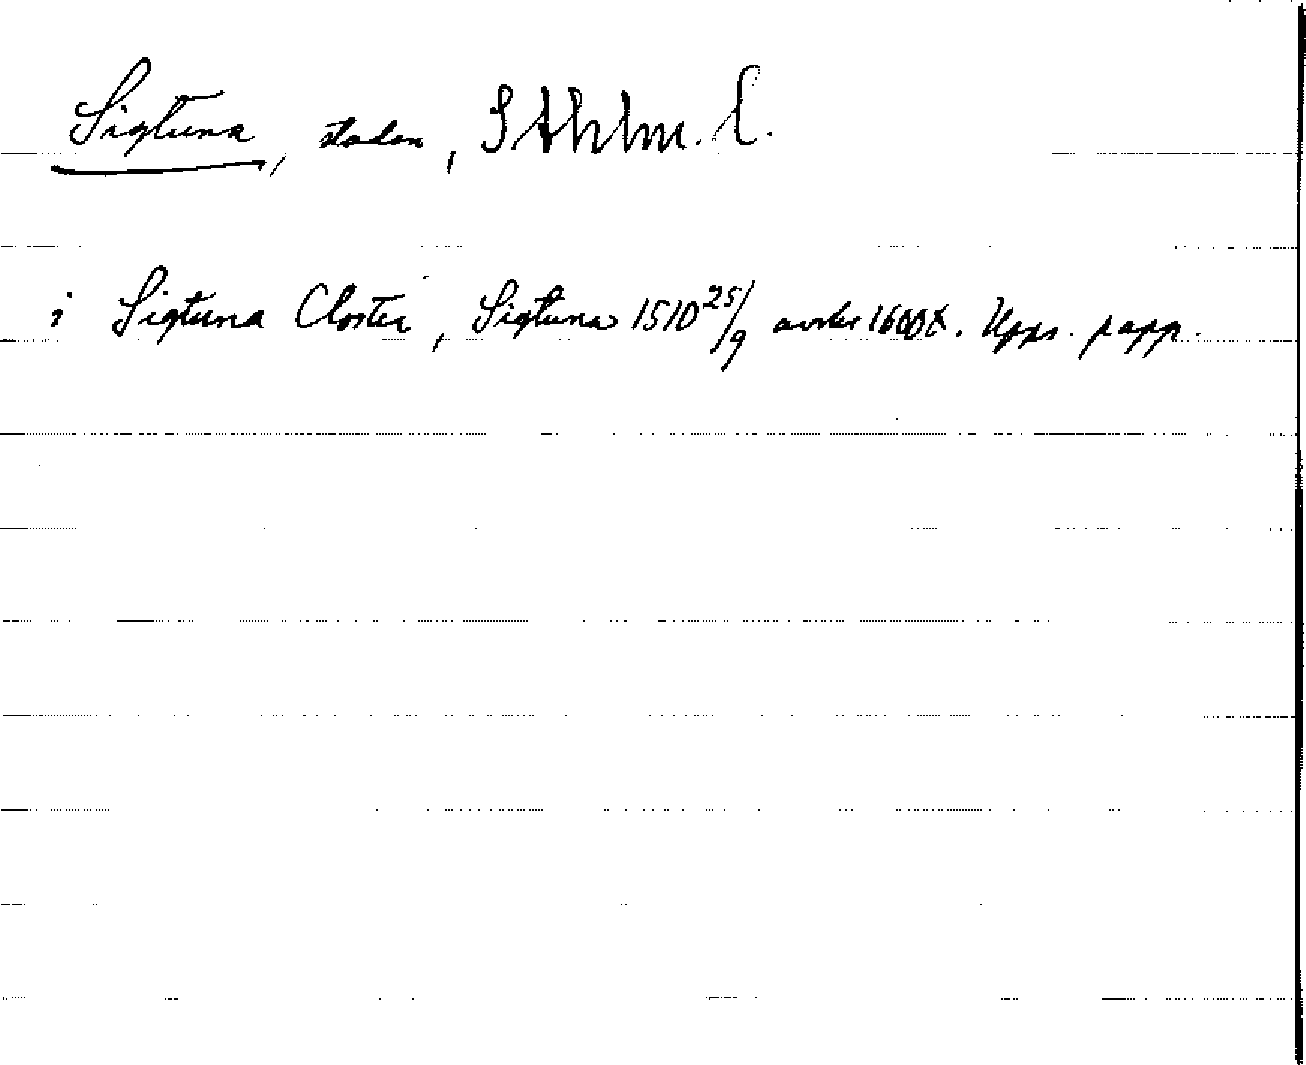 Sigtuna, staden, Sthlm. L.
i Sigtuna Closter, Sigtuna 1510 25/9 avskr 1600t. Upps. papp.